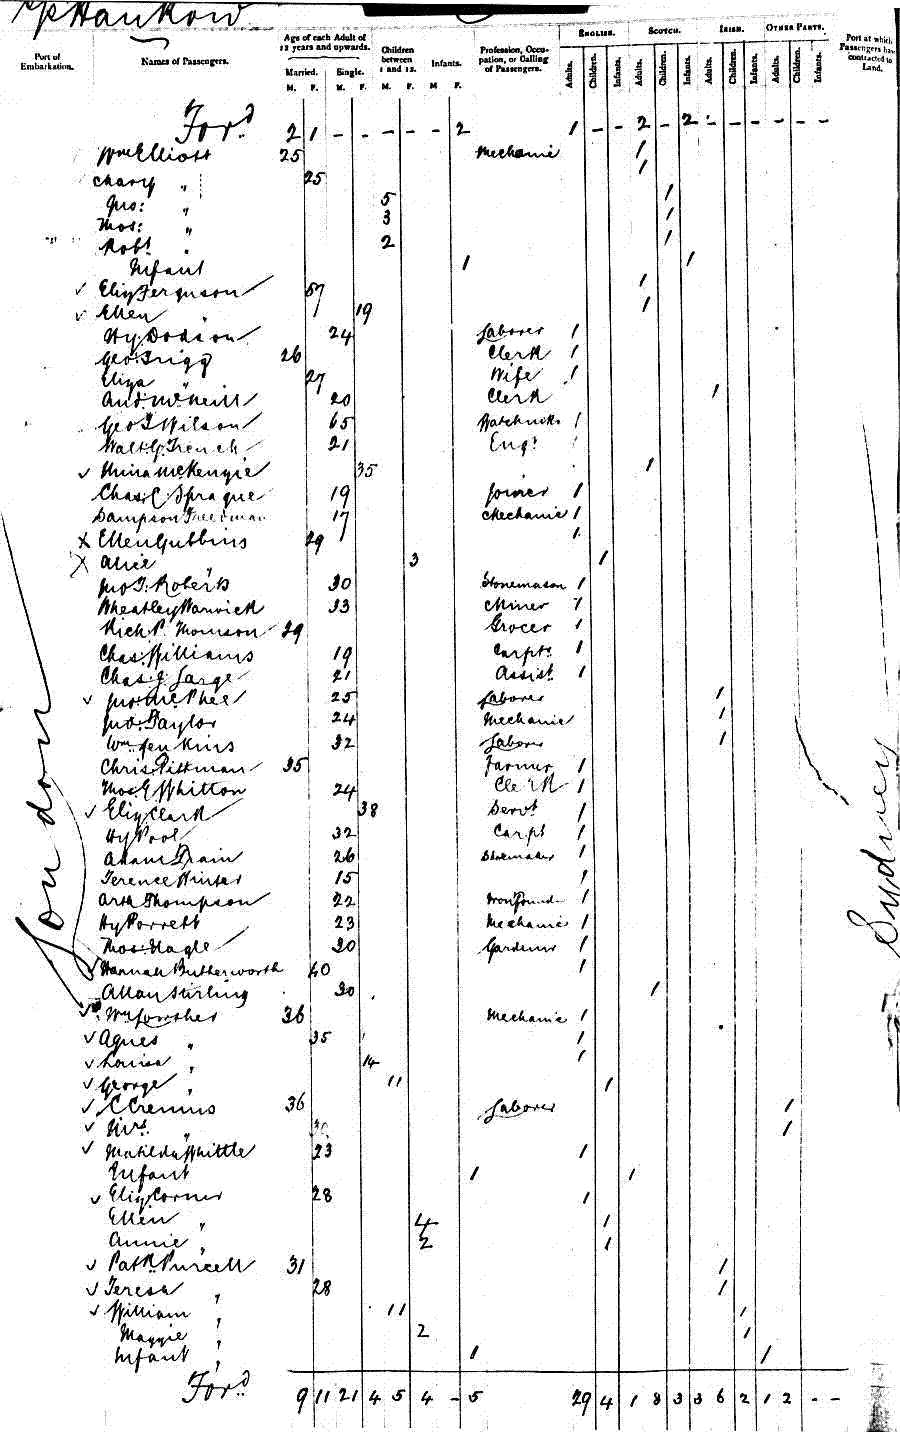 Hankow
Port of Embarkation.
Names of Passengers.
Age of each Adult of 12 years and upwards.
Married. Single.
M. F. M. F.
Children between 1 and 12.
M. F.
Infants.
M F.
Profession, Occupation, or Calling of Passengers.
ENGLISH. SCOTCH. IRISH. OTHER PARTS.
Adults. Children. Infants. Adults. Children. Infants. Adults. Children. Infants. Adults. Children. Infants.
Port at which Passengers have contracted to Land.
London
Sydney
Ford 2 1 - - - - - 2 1 - - 2 - 2 - - - - - -
Wm Elliott 25 Mechanic 1
Mary " 25 1
Jno: " 5 1
Thos: " 3 1
Robt " 2 1
Infant 1 1
Eliz Ferguson 57 1
Ellen " 19 1
Hy Dodson 24 Laborer 1
Geo: Trigg 26 Clerk 1
Eliza " 27 Wife 1
Andw McNeill 20 Clerk 1
Geo T Wilson 65 1
Walt G. French 21 Engr 1
Mina McKenzie 35 1
Chas. C. Sprague 19 Joiner 1
Sampson Freeman 17 Mechanic 1
Ellen Gubbins 29 1
Alice " 3 1
Jno T. Roberts 30 Stonemason 1
Wheatley Warwick 33 Miner 1
Rich P. Thomson 29 Grocer 1
Chas. Williams 19 Carptr 1
Chas. J. Large 21 Assist. 1
Jno McPhee 25 Laborer 1
Jno. Taylor 24 Mechanic 1
Wm. Jenkins 32 Laborer 1
Chris. Pittman 35 Farmer 1
Thos E Whitton 24 Clerk 1
Eliz Clark 38 Servt 1
Hy Pool 32 Carpt 1
Adam Drain 26 Shoemaker 1
Terence Winter 15 1
Arth Thompson 22 Iron Found 1
Hy Porrett 23 Mechanic 1
Thos. Nagle 20 Gardener 1
Hannah Butterworth 40 1
Allan Stirling 30 1
Wm Lowther 36 Mechanic 1
Agnes " 35 1
Louisa " 14 1
George " 11 1
C Cremus 36 Laborer 1
Mrs. " 30 1
Matilda Whittle 23 1
Infant 1 1
Eliz Corner 28 1
Ellen " 4 1
Annie " 2 1
Patk Purcell 31 1
Teresa " 28 1
William " 11 1
Maggie " 2 1
Infant " 1 1
Ford 9 11 21 4 5 4 - 5 29 4 1 8 3 3 6 2 1 2 - -